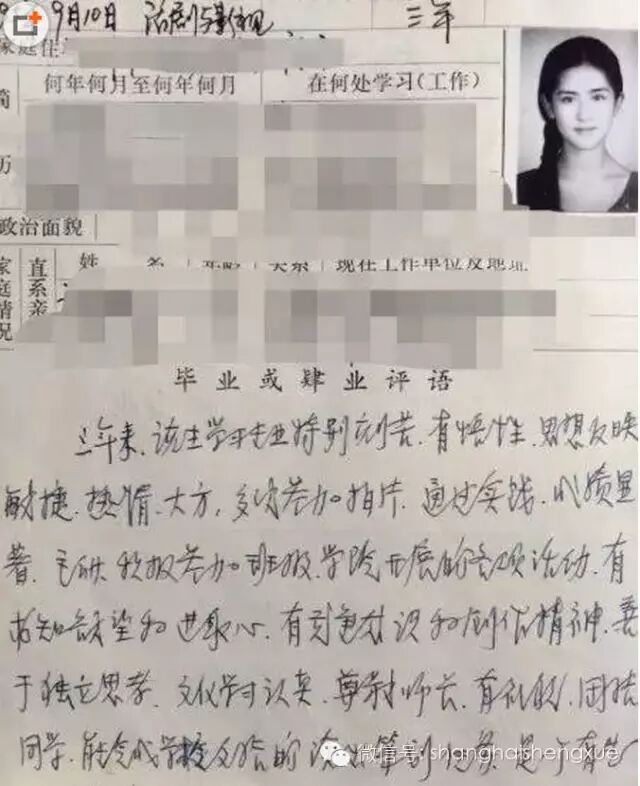 9月10日 话剧影视 三年
家庭住
简
何年何月至何年何月 在何处学习(工作)
历
政治面貌
家庭情况
直系亲
姓 名 年龄 关系 现在工作单位及地址
毕业或肄业评语
三年来、该生学习专业特别刻苦、有悟性、思想反映
敏捷、热情、大方、多次参加拍片、通过实践、成绩显
著、主动、积极参加班级、学院开展的各项活动、有
求知欲望和进取心、有刻意识和创作精神、善
于独立思考、文化学习认真、尊敬师长、有礼貌、团结
同学、能完成学校交给的 是
微信号: shanghaishengxue